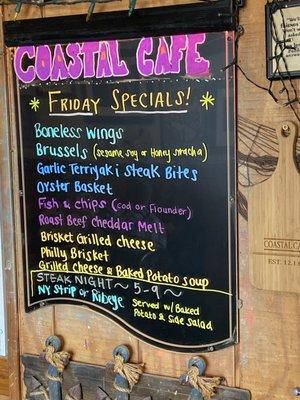 COASTAL CAFE
FRIDAY SPECIALS!
Boneless Wings
Brussels (sesame soy or Honey sriracha)
Garlic Terriyaki Steak Bites
Oyster Basket
Fish & chips (Cod or Flounder)
Roast Beef Cheddar Melt
Brisket Grilled cheese
Philly Brisket
Grilled Cheese & Baked Potato soup
STEAK NIGHT ~ 5-9 ~
NY Strip or Ribeye Served w/ Baked
Potato & Side Salad
COASTAL CA